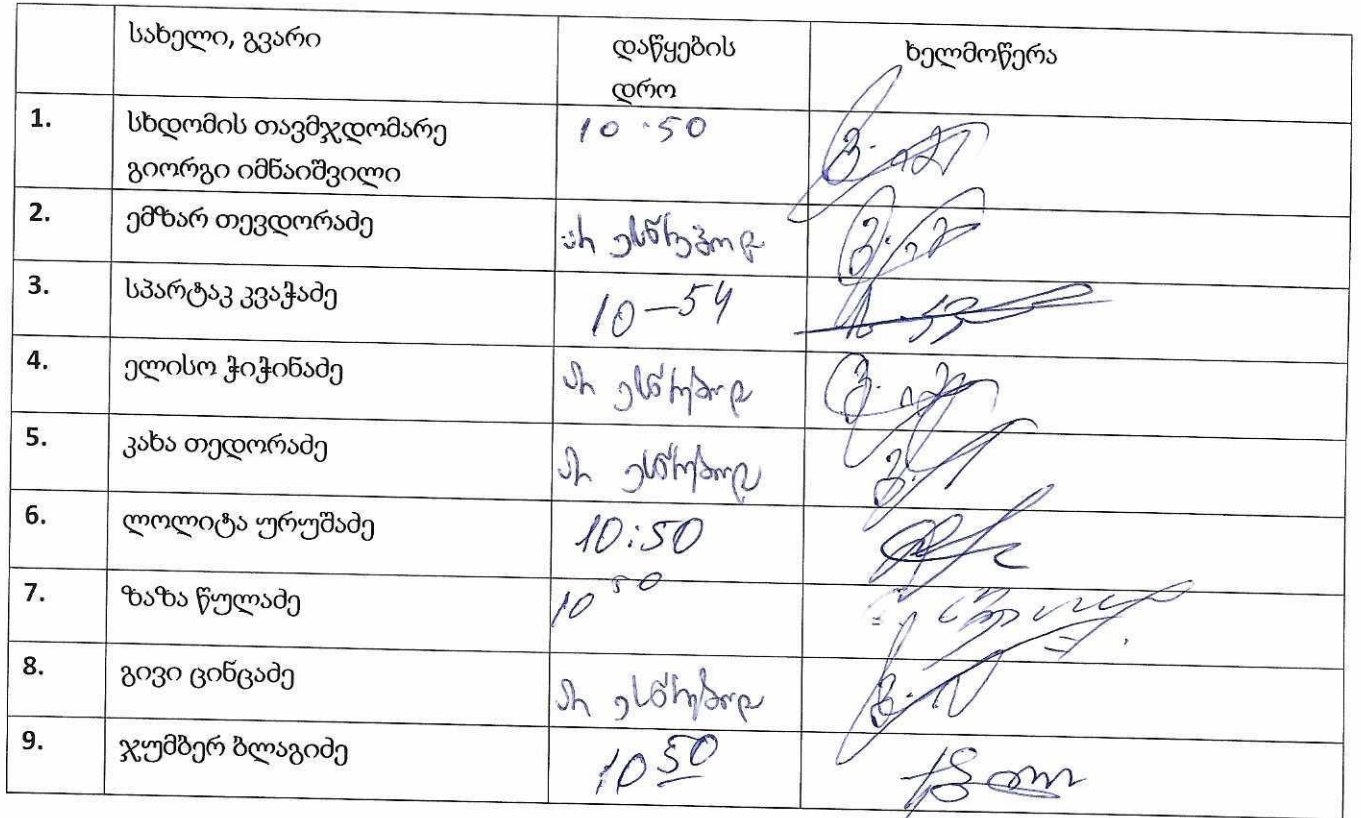 სახელი, გვარი დაწყების ხელმოწერა
დრო
1. სხდომის თავმჯდომარე 10:50
გიორგი იმნაიშვილი
2. ემზარ თევდორაძე არ ესწრებოდა
3. სპარტაკ კვაჭაძე 10-54
4. ელისო ჭიჭინაძე არ ესწრებოდა
5. კახა თედორაძე არ ესწრებოდა
6. ლოლიტა ურუშაძე 10:50
7. ზაზა წულაძე 10 50
8. გივი ცინცაძე არ ესწრებოდა
9. ჯუმბერ ბლაგიძე 10 50